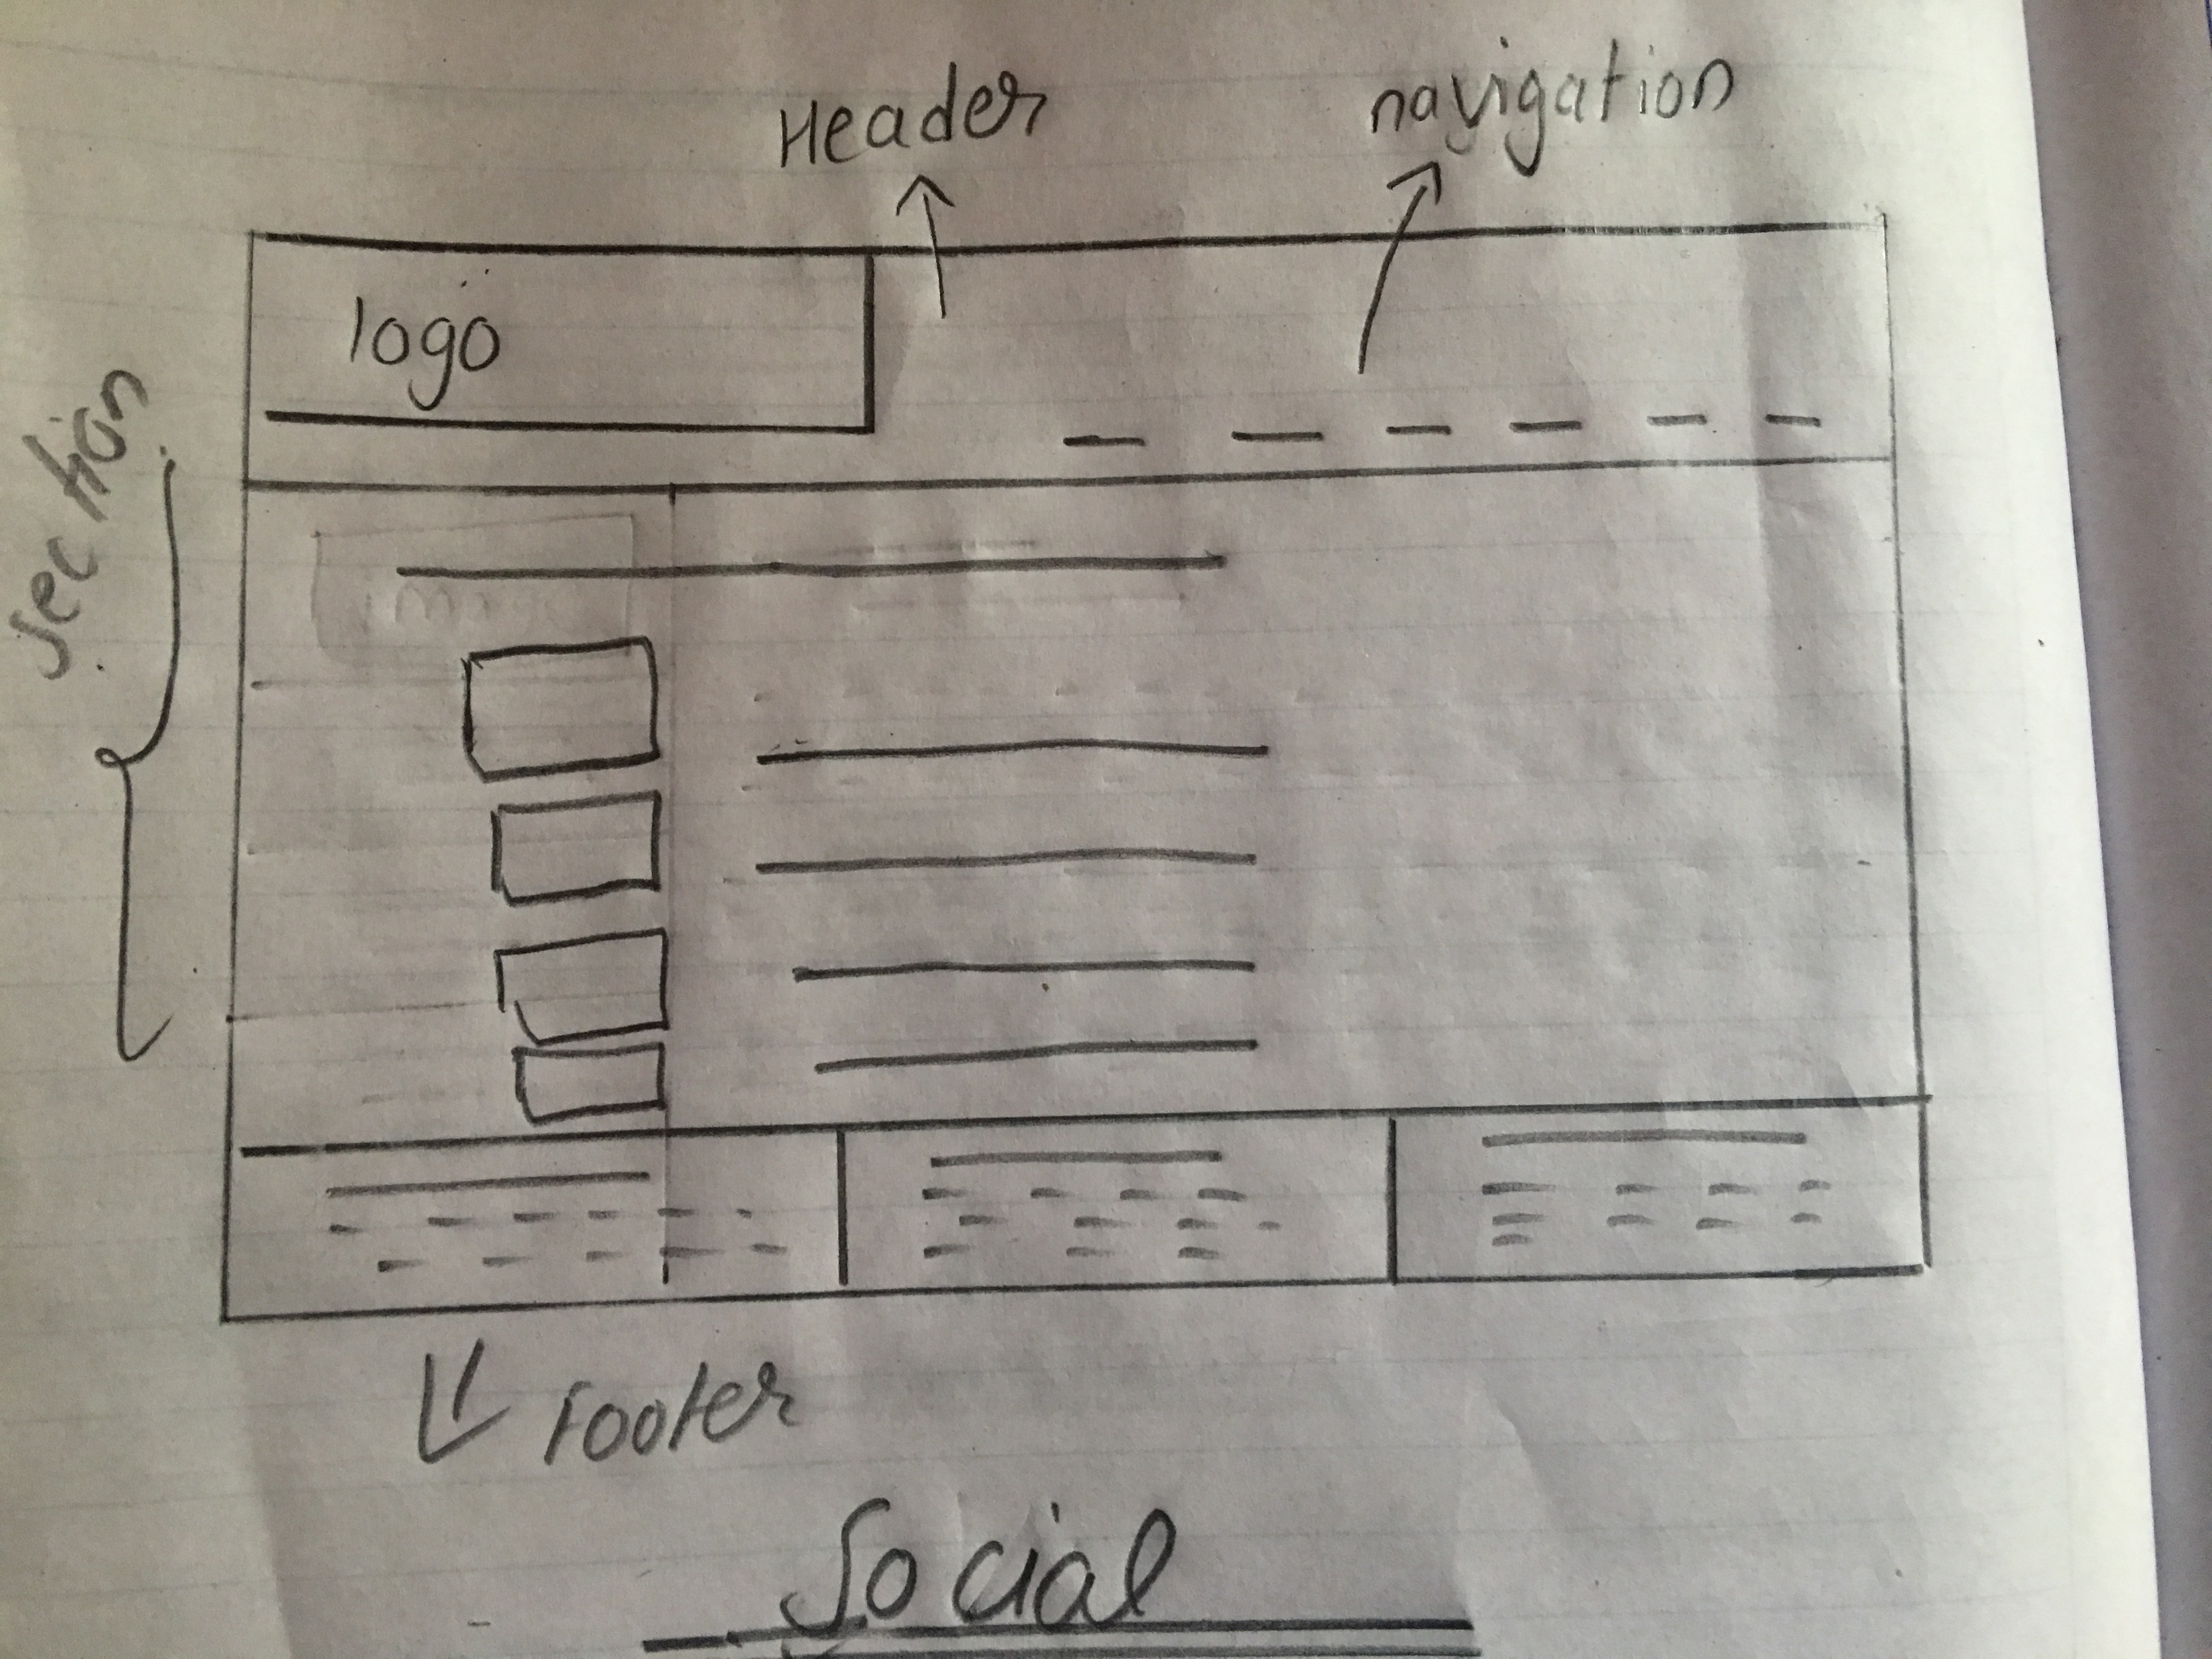 Header
navigation
logo
section
Footer
Social